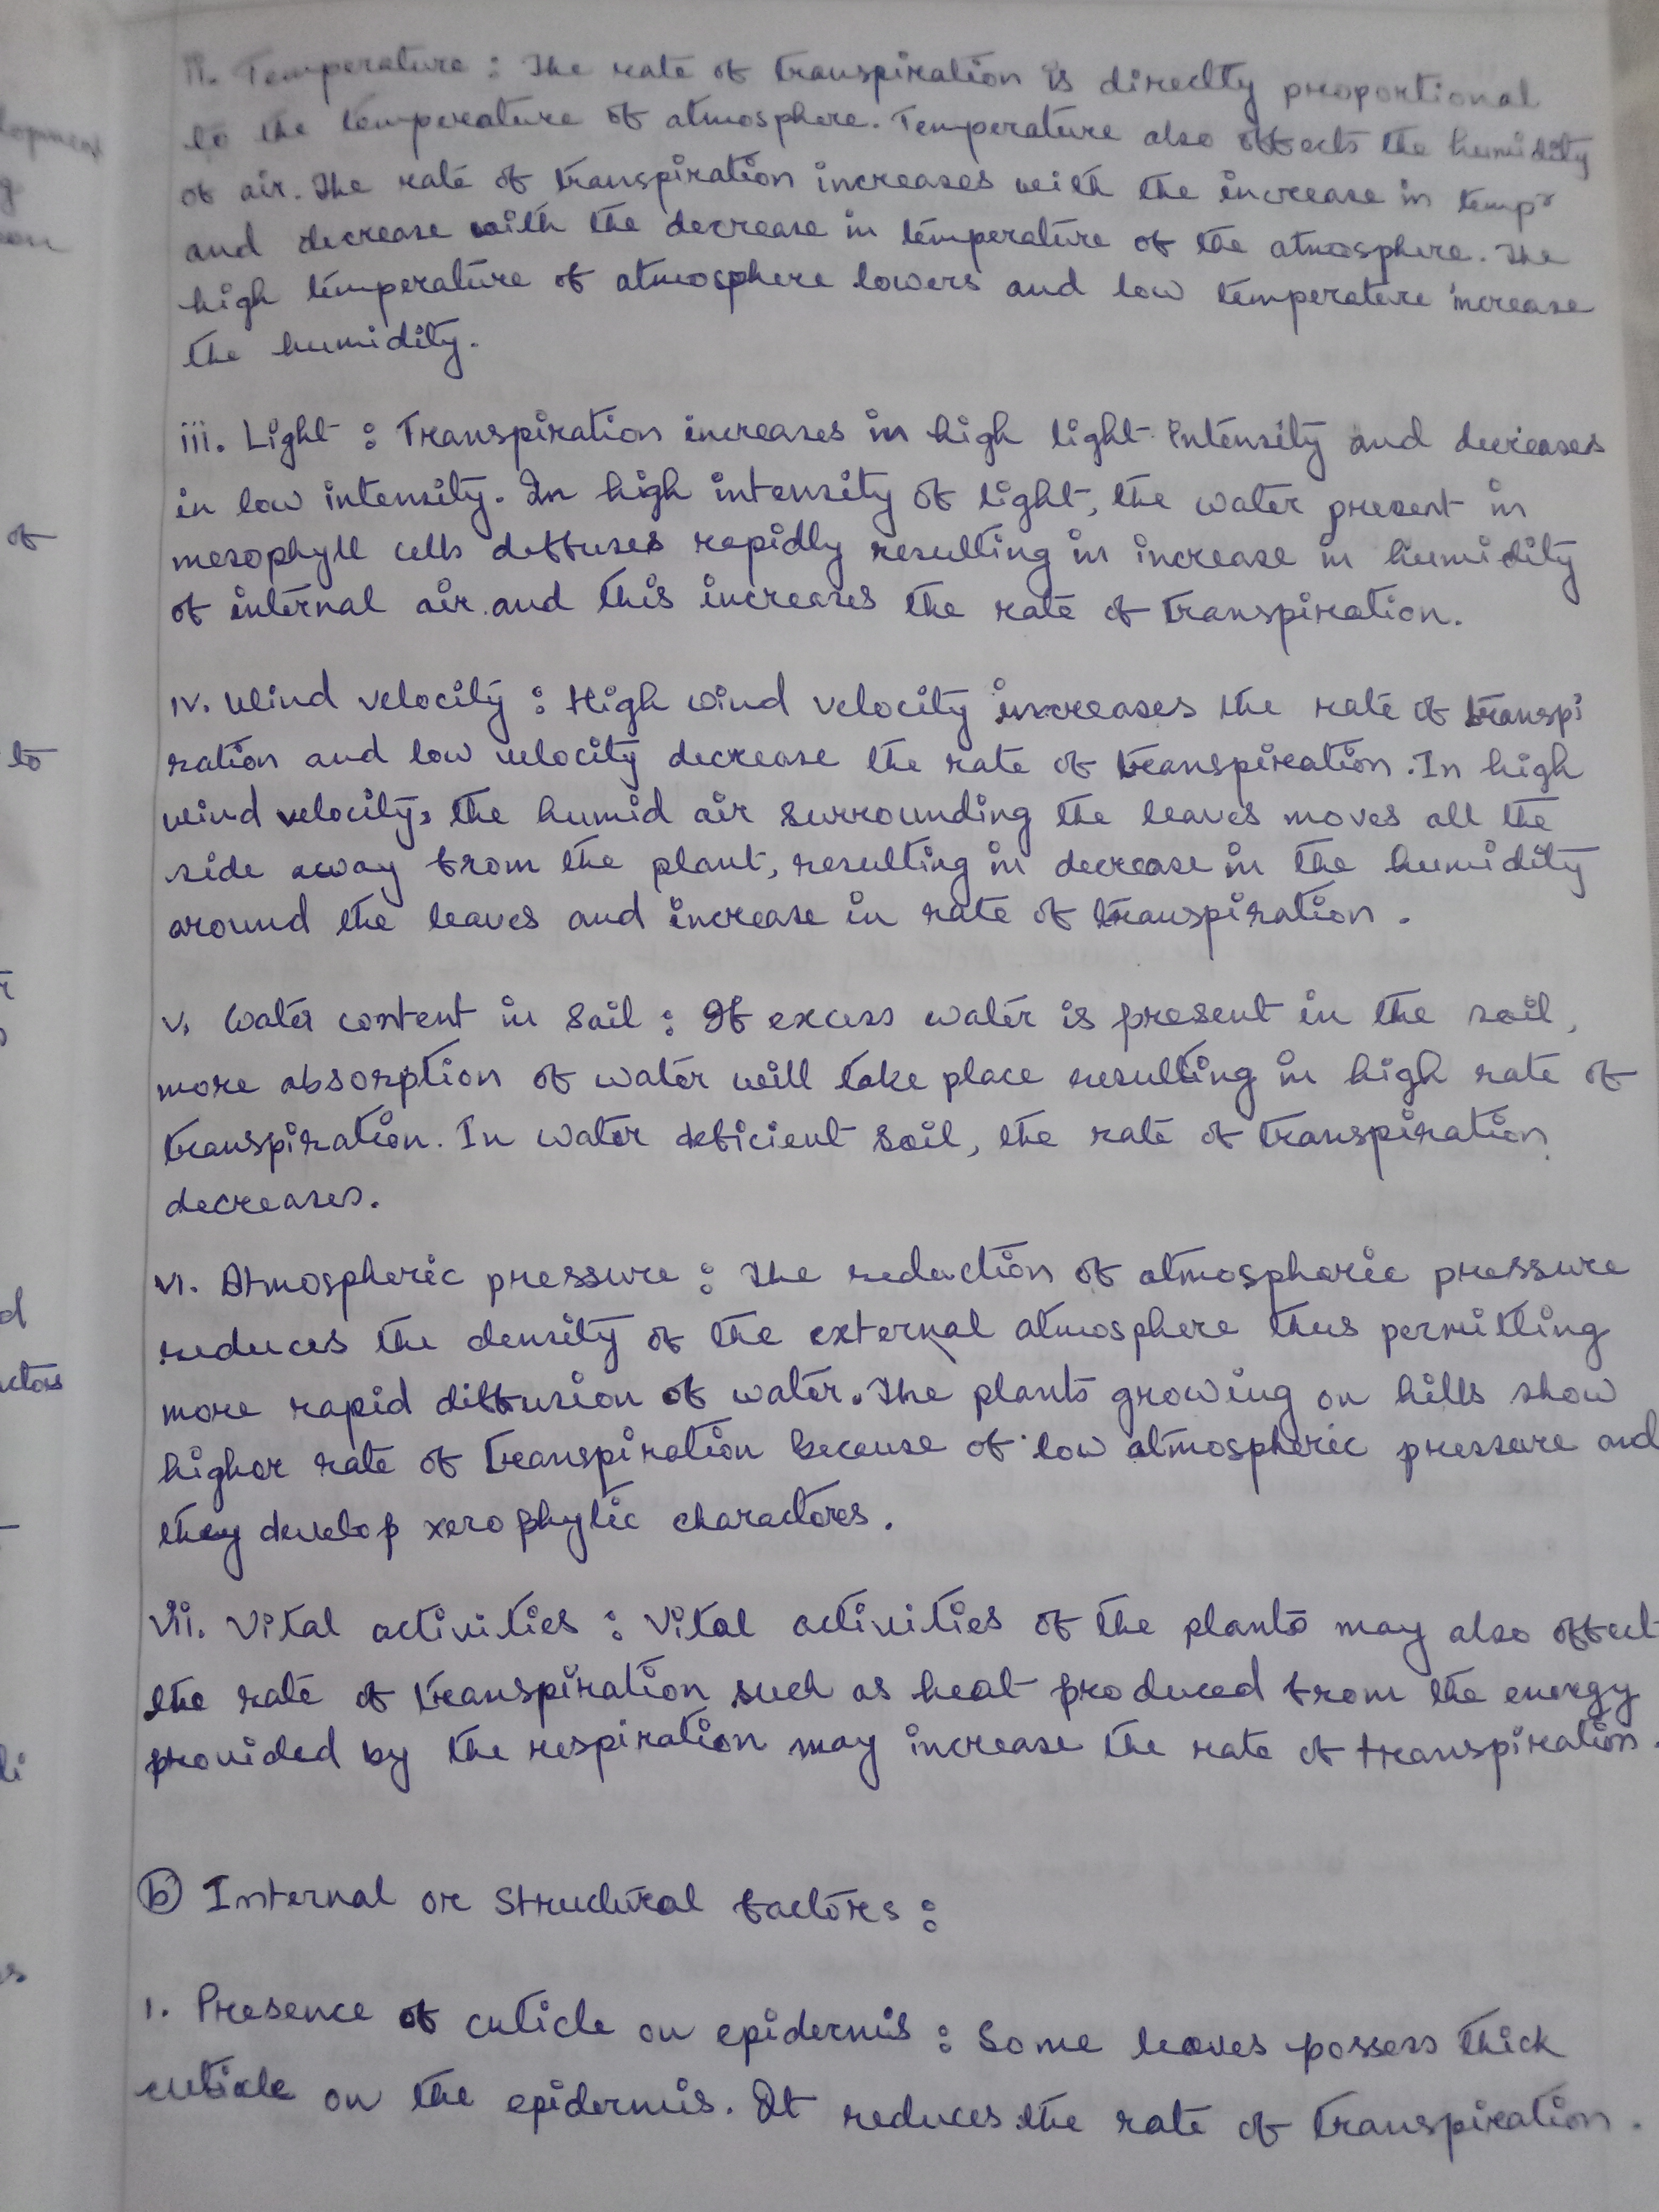 ii. Temperature : The rate of transpiration is directly proportional
to the temperature of atmosphere. Temperature also affects the humidity
of air. The rate of transpiration increases with the increase in tempr
and decrease with the decrease in temperature of the atmosphere. The
high temperature of atmosphere lowers and low temperature increase
the humidity.
iii. Light : Transpiration increases in high light intensity and decreases
in low intensity. In high intensity of light, the water present in
mesophyll cells deffuses rapidly resulting in increase in humidity
of internal air and this increases the rate of transpiration.
iv. Wind velocity : High wind velocity increases the rate of transpi
ration and low velocity decrease the rate of transpiration. In high
wind velocity, the humid air surrounding the leaves moves all the
side away from the plant, resulting in decrease in the humidity
around the leaves and increase in rate of transpiration.
v. Water content in Soil : If excess water is present in the soil,
more absorption of water will take place resulting in high rate of
transpiration. In water deficient soil, the rate of transpiration
decreases.
vi. Atmospheric pressure : The reduction of atmospheric pressure
reduces the density of the external atmosphere thus permitting
more rapid diffusion of water. The plants growing on hills show
higher rate of transpiration because of low atmospheric pressure and
they develop xerophytic charactores.
vii. Vital activities : Vital activities of the plants may also affect
the rate of transpiration such as heat produced from the energy
provided by the respiration may increase the rate of transpiration.
(b) Internal or Structural factors :
i. Presence of cuticle on epidermis : Some leaves possess thick
cuticle on the epidermis. It reduces the rate of transpiration.
of
to